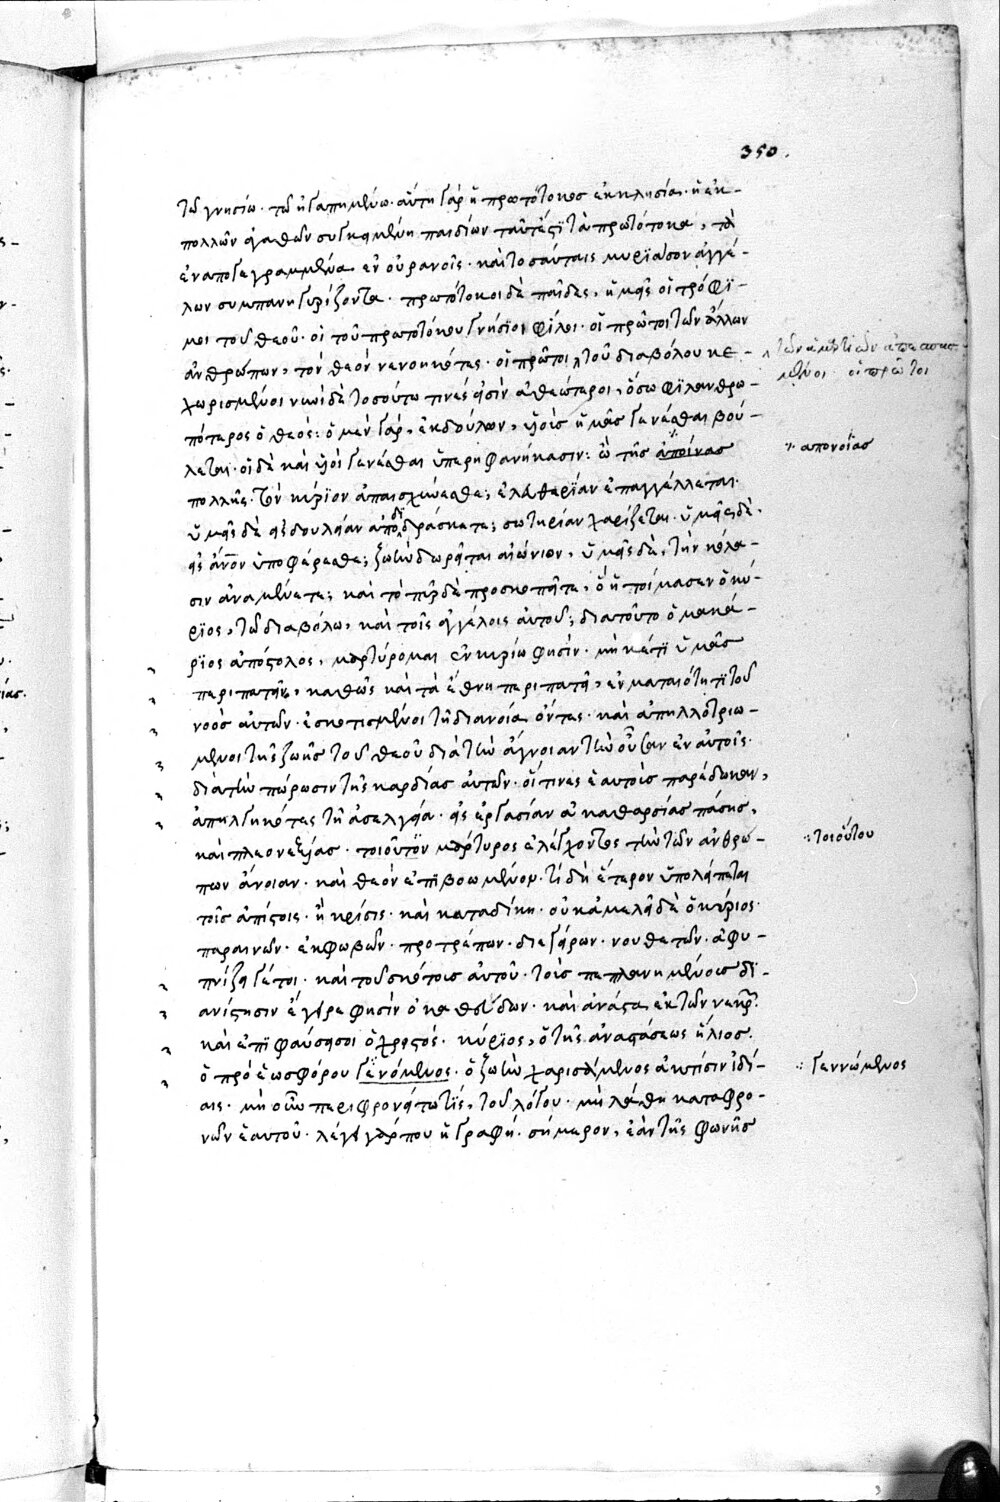 350.
τῷ γνησίῳ· τῷ ἠγαπημένῳ· αὕτη γὰρ ἡ πρωτότοκος ἐκκλησία· ἡ ἐκ-
πολλῶν ἀγαθῶν συγκειμένη παιδίων ταῦτ' ἔστι τὰ πρωτότοκα, τὰ
ἐναπογεγραμμένα ἐν οὐρανοῖς· καὶ τοσαύταις μυριάσιν ἀγγέ-
λων συμπανηγυρίζοντα· πρωτότοκοι δὲ παῖδες, ἡμεῖς οἱ τρόφι-
μοι τοῦ θεοῦ· οἱ τοῦ πρωτοτόκου γνήσιοι φίλοι· οἱ πρῶτοι τῶν ἄλλων
ἀνθρώπων, τὸν θεὸν νενοηκότες· οἱ πρῶτοι τοῦ διαβόλου κε-
τῶν ἁμαρτιῶν ἀπεσπασ-
μένοι οἱ πρῶτοι
χωρισμένοι νυνὶ δὲ τοσούτῳ τινές εἰσιν ἀθεώτεροι, ὅσῳ φιλανθρω-
πότερος ὁ θεός: ὁ μὲν γὰρ, ἐκ δούλων, υἱοὺς ἡμᾶς γενέσθαι βού-
λεται· οἱ δὲ καὶ υἱοὶ γενέσθαι ὑπερηφανήκασιν: ὢ τῆς ἀποίνας
ἀπονοίας
πολλῆς· τὸν κύριον ἐπαισχύνεσθε; ἐλευθερίαν ἐπαγγέλλεται·
ὑμεῖς δὲ εἰς δουλείαν ἀποδιδράσκετε; σωτηρίαν χαρίζεται· ὑμεῖς δὲ·
εἰς ἄνον ὑποφέρεσθε; ζωὴν δωρεῖται αἰώνιον, ὑμεῖς δὲ, τὴν κόλα-
σιν ἀναμένετε; καὶ τὸ πῦρ δὲ προσκοπεῖτε, ὃ ἡτοίμασεν ὁ κύ-
ριος, τῷ διαβόλῳ, καὶ τοῖς ἀγγέλοις αὐτοῦ; διὰ τοῦτο ὁ μακά-
ριος ἀπόστολος, μαρτύρομαι ἐν κυρίῳ φησίν· μηκέτι ὑμᾶς
περιπατεῖν, καθὼς καὶ τὰ ἔθνη περιπατεῖ, ἐν ματαιότητι τοῦ
νοὸς αὐτῶν· ἐσκοτισμένοι τῇ διανοίᾳ ὄντες· καὶ ἀπηλλοτριω-
μένοι τῆς ζωῆς τοῦ θεοῦ διὰ τὴν ἄγνοιαν τὴν οὖσαν ἐν αὐτοῖς·
διὰ τὴν πώρωσιν τῆς καρδίας αὐτῶν· οἵτινες ἑαυτοὺς παρέδωκαν,
ἀπηλγηκότες τῇ ἀσελγείᾳ· εἰς ἐργασίαν ἀκαθαρσίας πάσης,
καὶ πλεονεξίας· τοιοῦτον μάρτυρος ἐλέγχοντος τὴν τῶν ἀνθρώ-
τοιούτου
πων ἄνοιαν· καὶ θεὸν ἐπιβοωμένου· τί δὴ ἕτερον ὑπολείπεται
τοῖς ἀπίστοις· ἢ κρίσις· καὶ καταδίκη· οὐ κάμνει δὲ ὁ κύριος·
παραινῶν· ἐκφοβῶν· προτρέπων· διεγείρων· νουθετῶν· ἀφυ-
πνίζει γέ τοι· καὶ τοῦ σκότους αὐτοῦ· τοὺς πεπλανημένους δι-
ανίστησιν ἔγειρε φησὶν ὁ καθεύδων· καὶ ἀνάστα ἐκ τῶν νεκρῶν·
καὶ ἐπιφαύσει σοι ὁ χριστός· κύριος, ὁ τῆς ἀναστάσεως ἥλιος·
ὁ πρὸ ἑωσφόρου γενόμενος· ὁ ζωὴν χαρισάμενος ἀκτῖσιν ἰδί-
γεννώμενος
αις· μὴ οὖν περιφρονείτω τὶς, τοῦ λόγου· μὴ λάθῃ καταφρο-
νῶν ἑαυτοῦ· λέγει γάρ που ἡ γραφή· σήμερον, ἐὰν τῆς φωνῆς